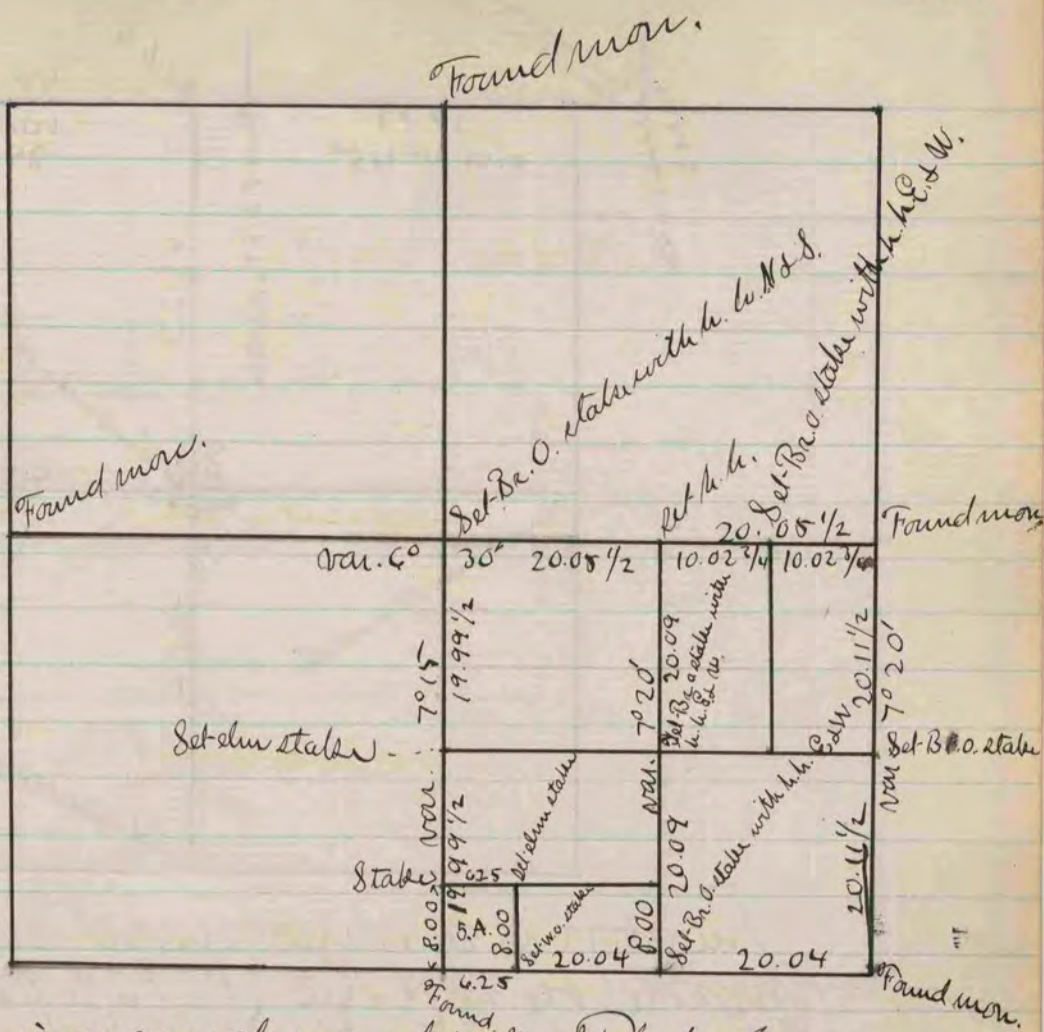 Found mon.
Set Br. O. stake with h. h. N & S.
Set Br. O. stake with h. h. E. & W.
Found mon.
set h. h.
20.05 1/2
Found mon
var. 6° 30' 20.05 1/2 10.02 3/4 10.02 3/4
19.99 1/2
var. 7° 15'
var. 7° 20'
Set Br. O. stake with h. h. E. & W.
20.09
20.11 1/2
var 7° 20'
Set elm stake
Set Br. O. stake
19.99 1/2
Set elm stake
20.09
Set Br. O. stake with h. h. E & W
20.11 1/2
Stake
6.25
8.00
5. A.
8.00
Set W. O. stake
8.00
20.04
20.04
6.25
Found
Found mon.